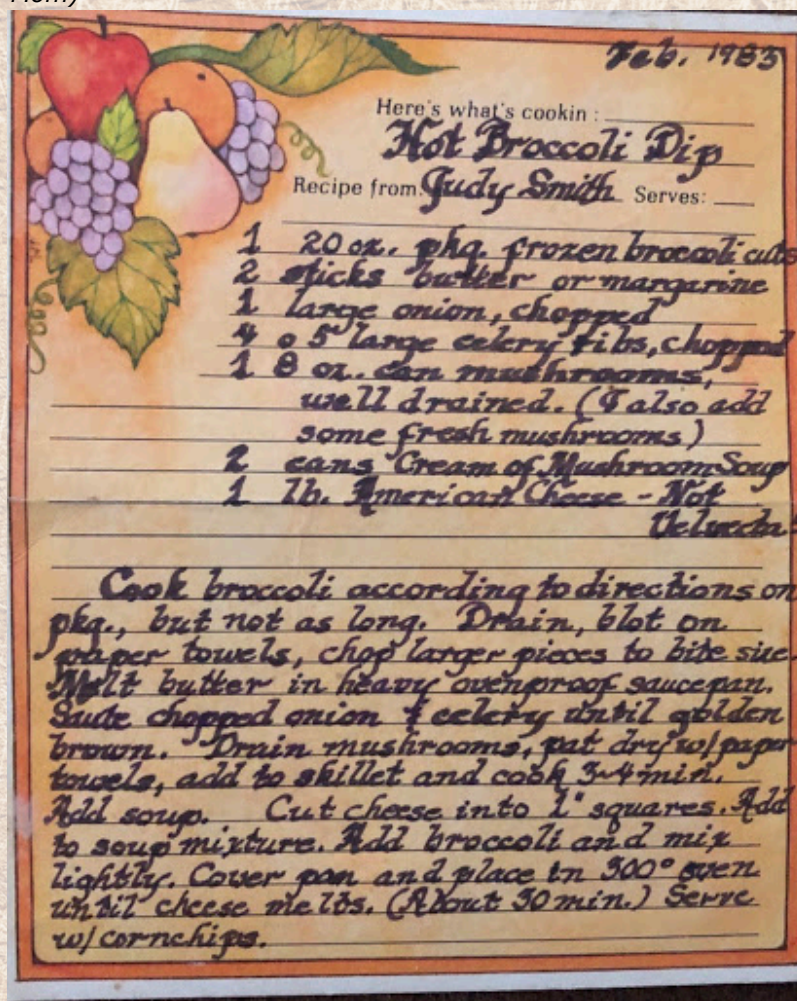 Feb. 1983
Here's what's cookin :
Hot Broccoli Dip
Recipe from Judy Smith Serves:
1 20 oz. pkg. frozen broccoli cuts
2 sticks butter or margarine
1 large onion, chopped
4 o 5 large celery ribs, chopped
1 8 oz. can mushrooms,
well drained. (I also add
some fresh mushrooms)
2 cans Cream of Mushroom Soup
1 lb. American Cheese - Not
Velveeta!
Cook broccoli according to directions on
pkg., but not as long. Drain, blot on
paper towels, chop larger pieces to bite size.
Melt butter in heavy ovenproof saucepan.
Saute chopped onion & celery until golden
brown. Drain mushrooms, pat dry w/paper
towels, add to skillet and cook 3-4 min.
Add soup. Cut cheese into 1" squares. Add
to soup mixture. Add broccoli and mix
lightly. Cover pan and place in 300° oven
until cheese melts. (About 30 min.) Serve
w/cornchips.